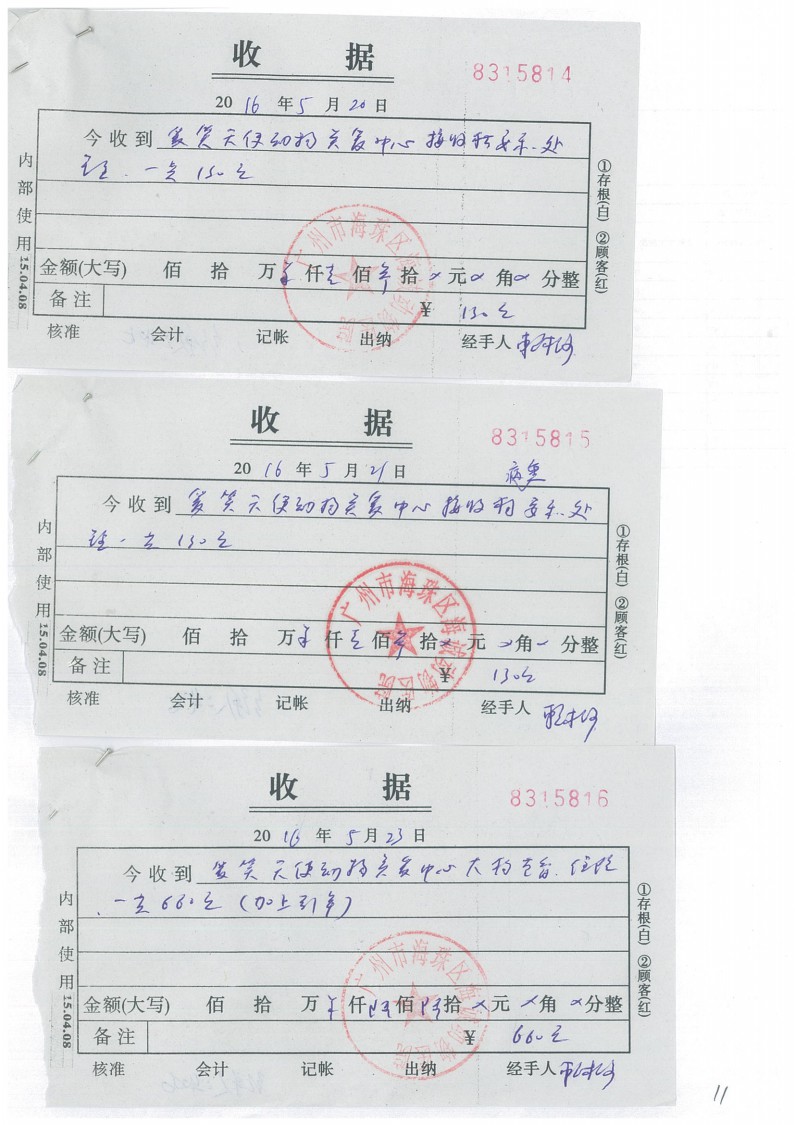 收 据
8315814
2016年5月20日
今收到 微笑天使动物关爱中心接收 安乐.处
理.一只 130元
内部使用
15.04.08
①存根(白) ②顾客(红)
金额(大写) 佰 拾 万 仟 壹 佰 拾 元 角 分整
备注 ¥ 130元
核准 会计 记帐 出纳 经手人
广州市海珠区海 动物医院
收 据
8315815
2016年5月21日
病重
今收到 微笑天使动物关爱中心接收狗安乐.处
理.一只 130元
内部使用
15.04.08
①存根(白) ②顾客(红)
金额(大写) 佰 拾 万 仟 壹 佰 拾 元 角 分整
备注 ¥ 130元
核准 会计 记帐 出纳 经手人
广州市海珠区海 动物医院
收 据
8315816
2016年5月23日
今收到 微笑天使动物关爱中心大狗 住院
.一只 660元(加上引产)
内部使用
15.04.08
①存根(白) ②顾客(红)
金额(大写) 佰 拾 万 仟陆佰陆拾 元 角 分整
备注 ¥ 660元
核准 会计 记帐 出纳 经手人
广州市海珠区海 动物医院
11